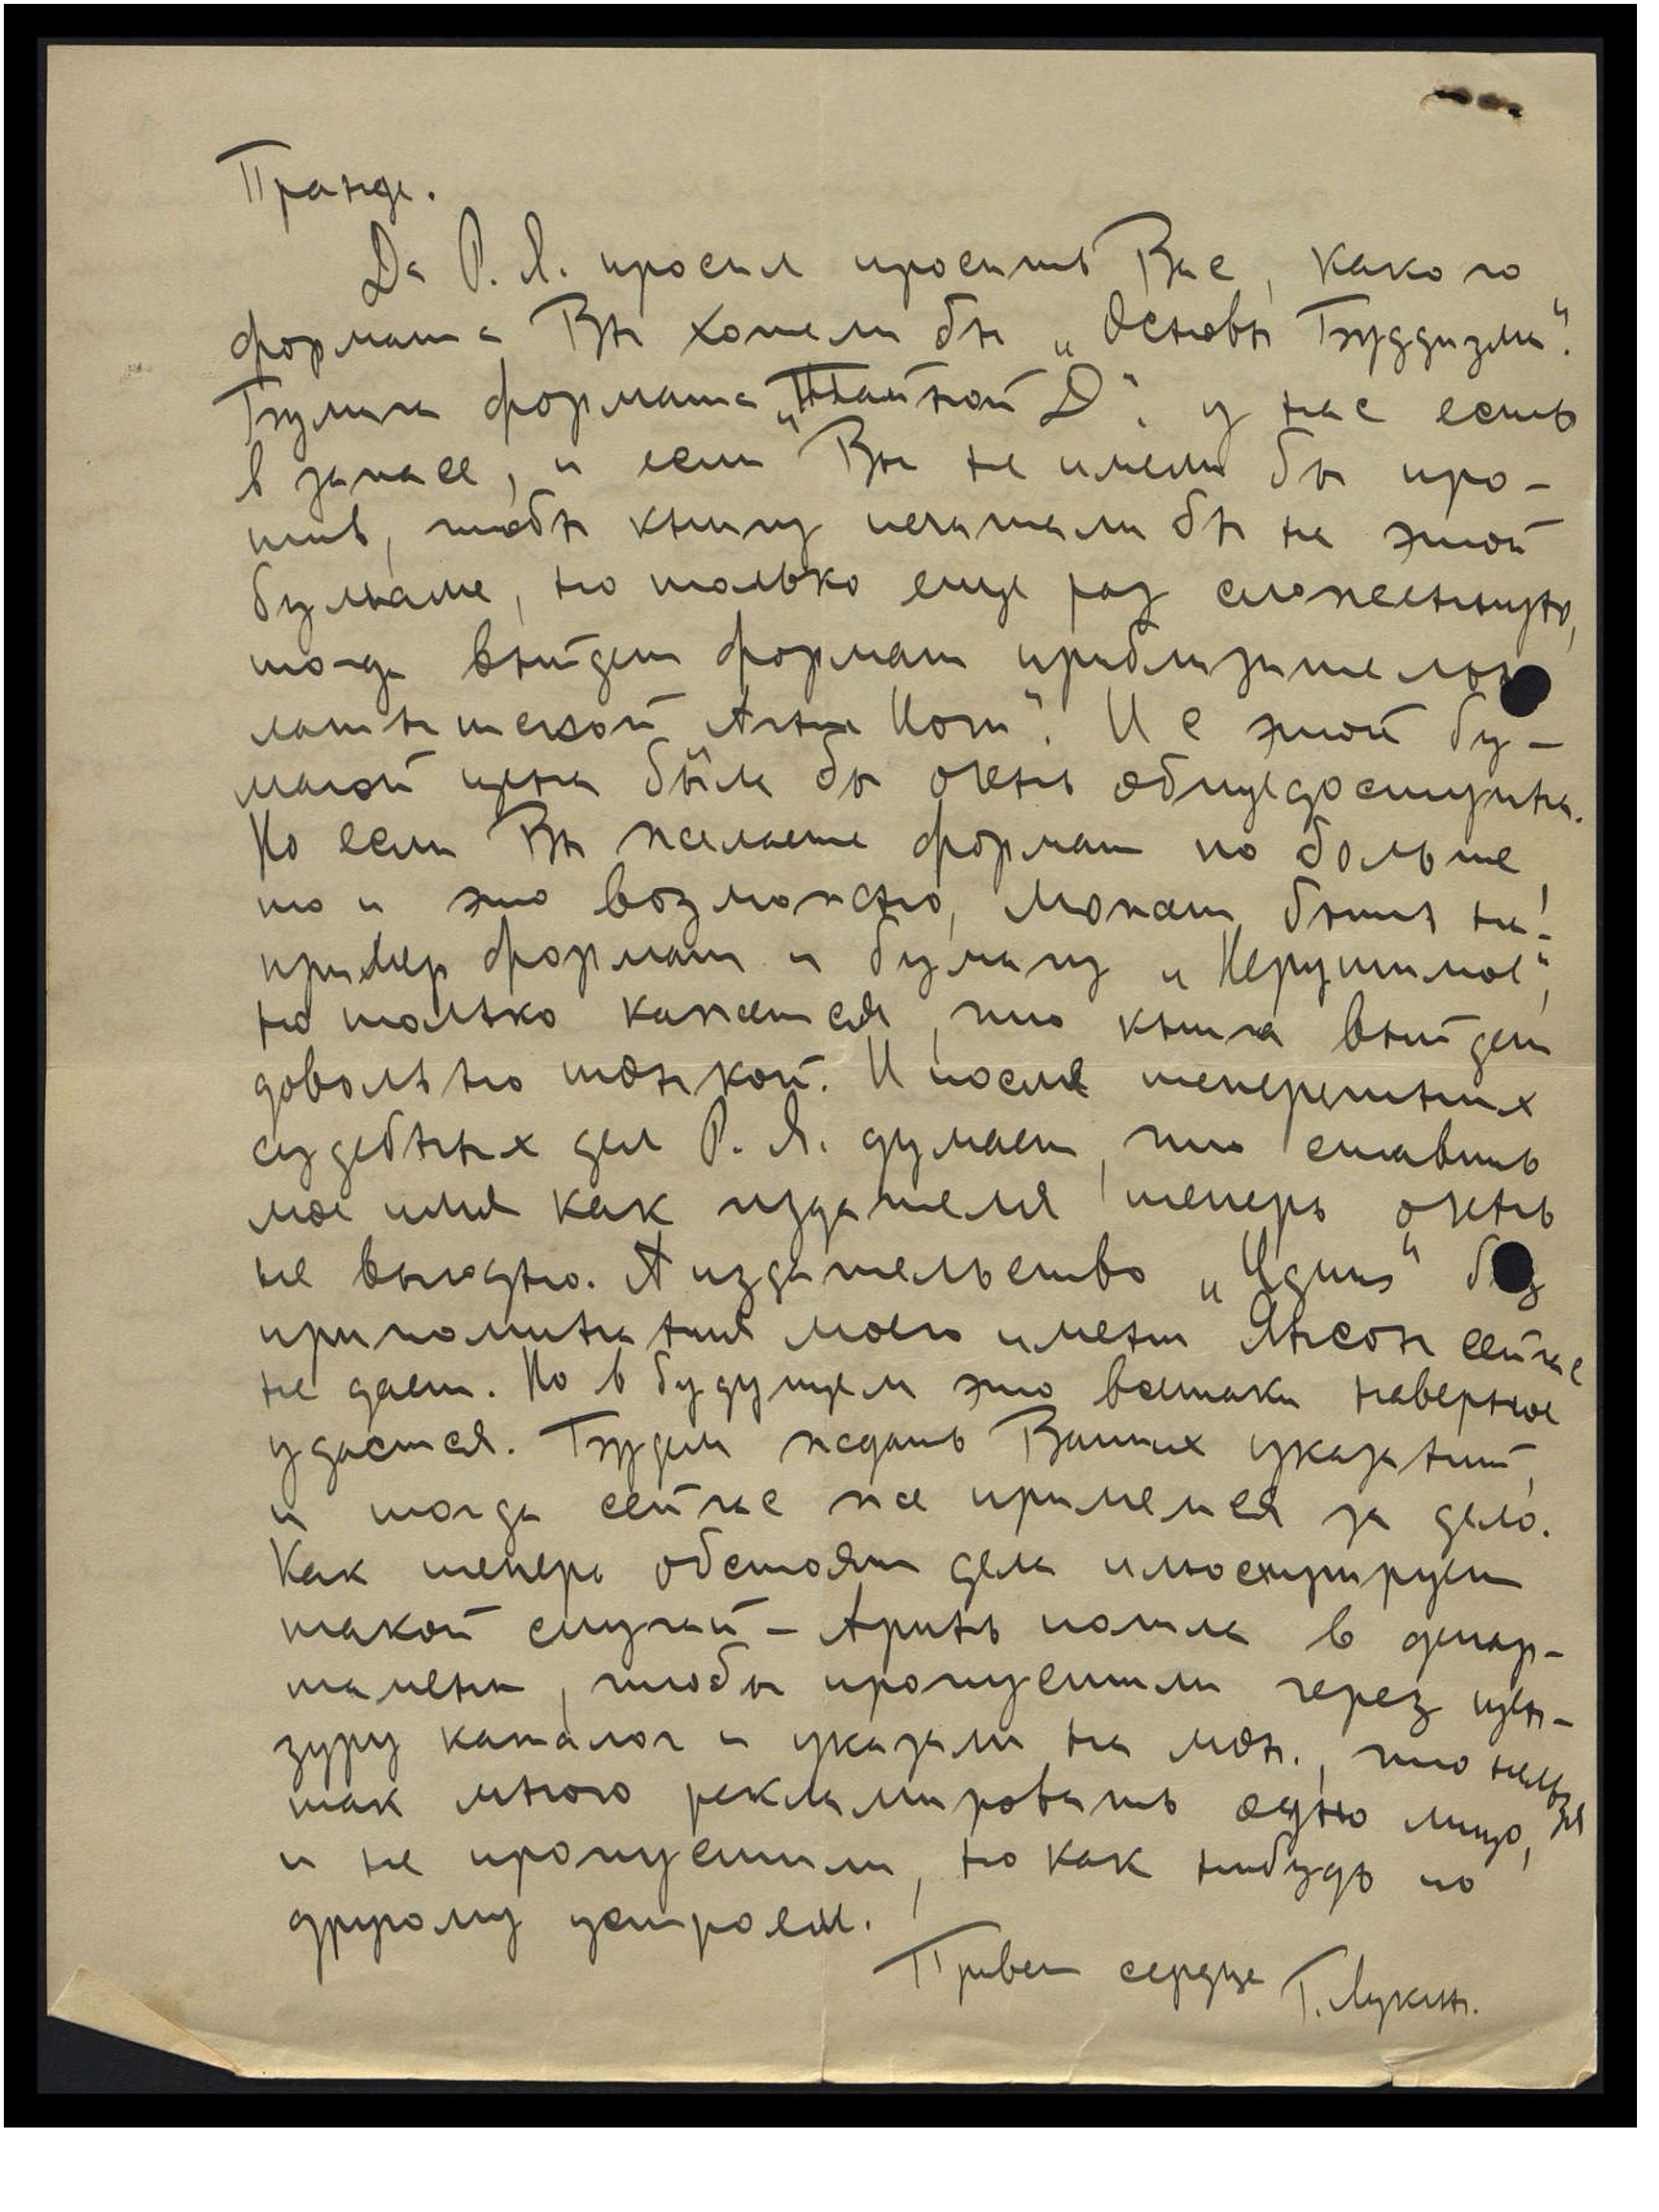 Пранде.
Да Р. Я. просил просить Вас, какого
формата Вы хотели бы „Основы Буддизма".
Бумага формата „Тайной Д". у нас есть
в запасе, и если Вы не имели бы про-
тив, чтобы книгу печатали бы на этой
бумаге, но только еще раз сложенную,
тогда выйдет формат приблизительно
латышской Агни Йоги". И с этой бу-
магой цена была бы очень общедоступна.
Но если Вы желаете формат по больше
то и это возможно, может быть на-
пример формат и бумагу „Нерушимое",
но только кажется, что книга выйдет
довольно тонкой. И после теперешних
судебных дел Р. Я. думает, что ставить
мое имя как издателя теперь очень
не выгодно. А издательство „Угунс" без
припоминания моего имени Янсон сейчас
не дает. Но в будущем это всетаки наверное
удастся. Будем ждать Ваших указаний,
и тогда сейчас же примемся за дело.
Как теперь обстоят дела иллюстрирует
такой случай – Аринь пошла в депар-
тамент, чтобы пропустили через цен-
зуру каталог и указали на мон., что нельзя
так много рекламировать одно лицо,
и не пропустили, но как нибудь по
другому устроем.
Привет сердца Г. Лукин.